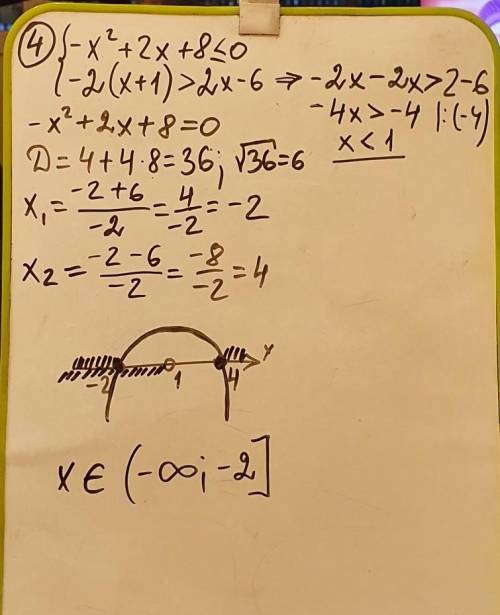 ④ {-x²+2x+8≤0
{-2(x+1)>2x-6 ⇒ -2x-2x>2-6
-4x>-4 |:(-4)
x<1
-x²+2x+8=0
D=4+4·8=36; √36=6
x₁=(-2+6)/(-2)=4/(-2)=-2
x₂=(-2-6)/(-2)=(-8)/(-2)=4
-2 1 4 x
x∈(-∞;-2]